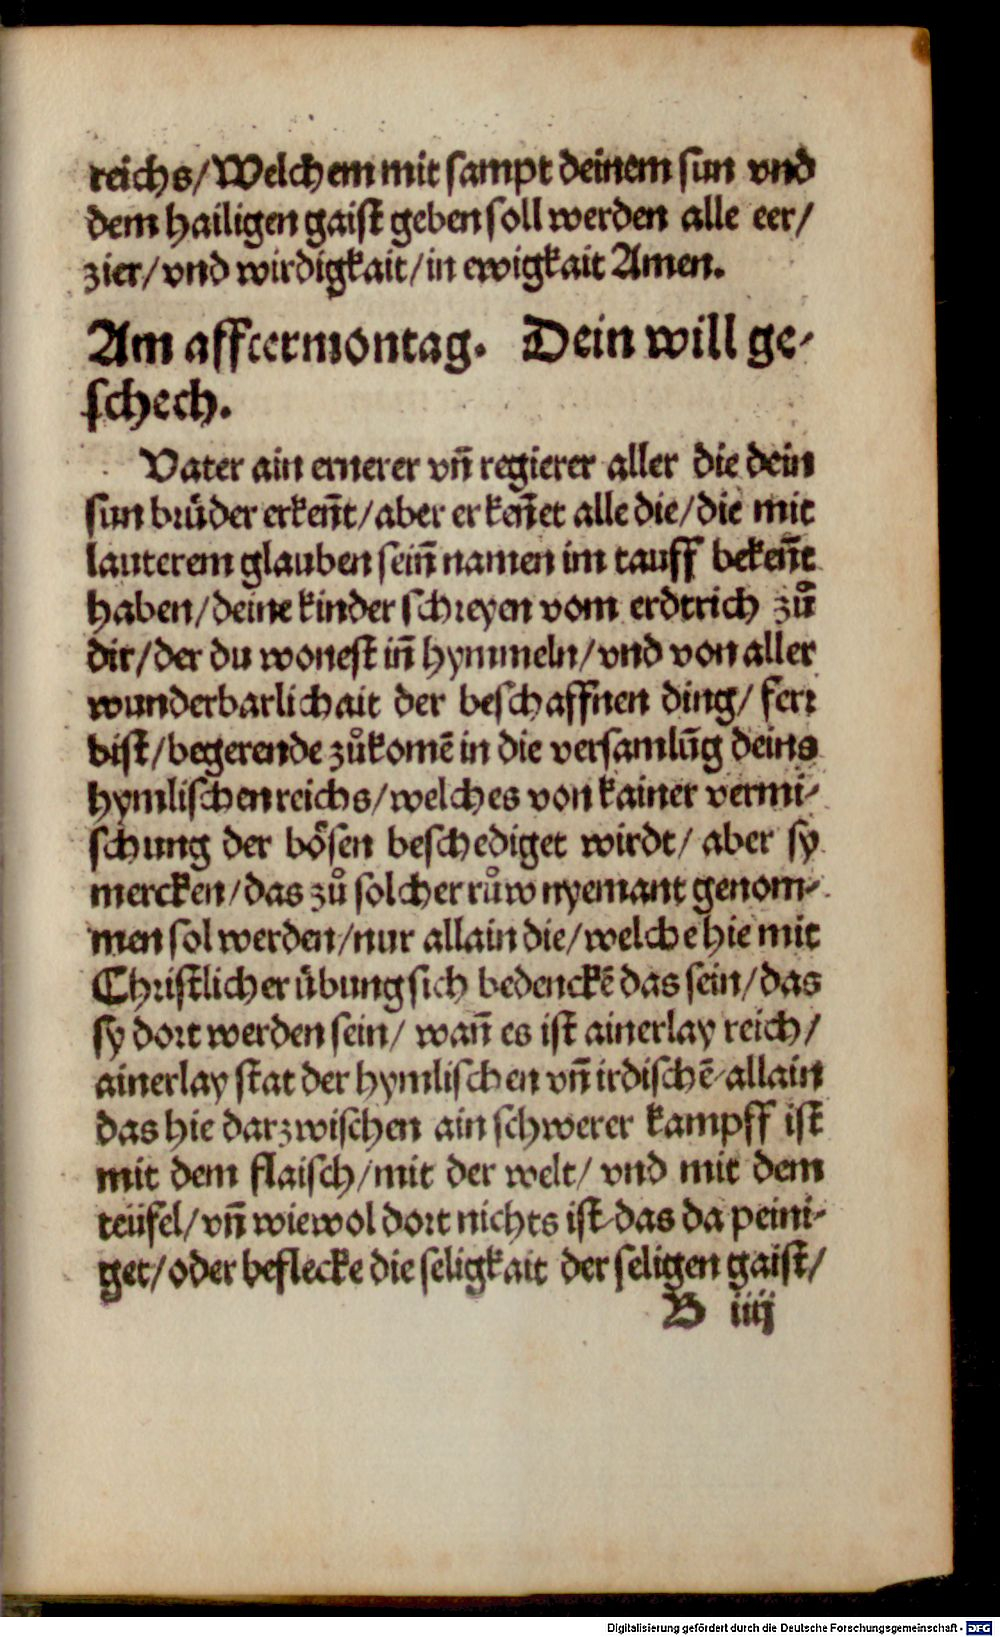 reichs/Welchem mit sampt deinem sun vnd
dem hailigen gaist geben soll werden alle eer/
zier/vnd wirdigkait/in ewigkait Amen.
Am afftermontag. Dein will ge-
schech.
Vater ain ernerer vn̄ regierer aller die dein
sun brüder erken̄t/aber erken̄et alle die/die mit
lauterem glauben sein̄ namen im tauff beken̄t
haben/deine kinder schreyen vom erdtrich zů
dir/der du wonest in̄ hymmeln/vnd von aller
wunderbarlichait der beschaffnen ding/ ferr
bist/begerende zůkomē in die versamlūg deins
hymlischen reichs/welches von kainer vermi-
schung der bösen beschediget wirdt/ aber sy
mercken/das zů solcher růw nyemant genom-
men sol werden/nur allain die/welche hie mit
Christlicher übung sich bedenckē das sein/das
sy dort werden sein/ wan̄ es ist ainerlay reich/
ainerlay stat der hymlischen vn̄ irdischē/allain
das hie darzwischen ain schwerer kampff ist
mit dem flaisch/mit der welt/ vnd mit dem
teüfel/vn̄ wiewol dort nichts ist/das da peini-
get/oder beflecke die seligkait der seligen gaist/
B iiij
Digitalisierung gefördert durch die Deutsche Forschungsgemeinschaft - DFG